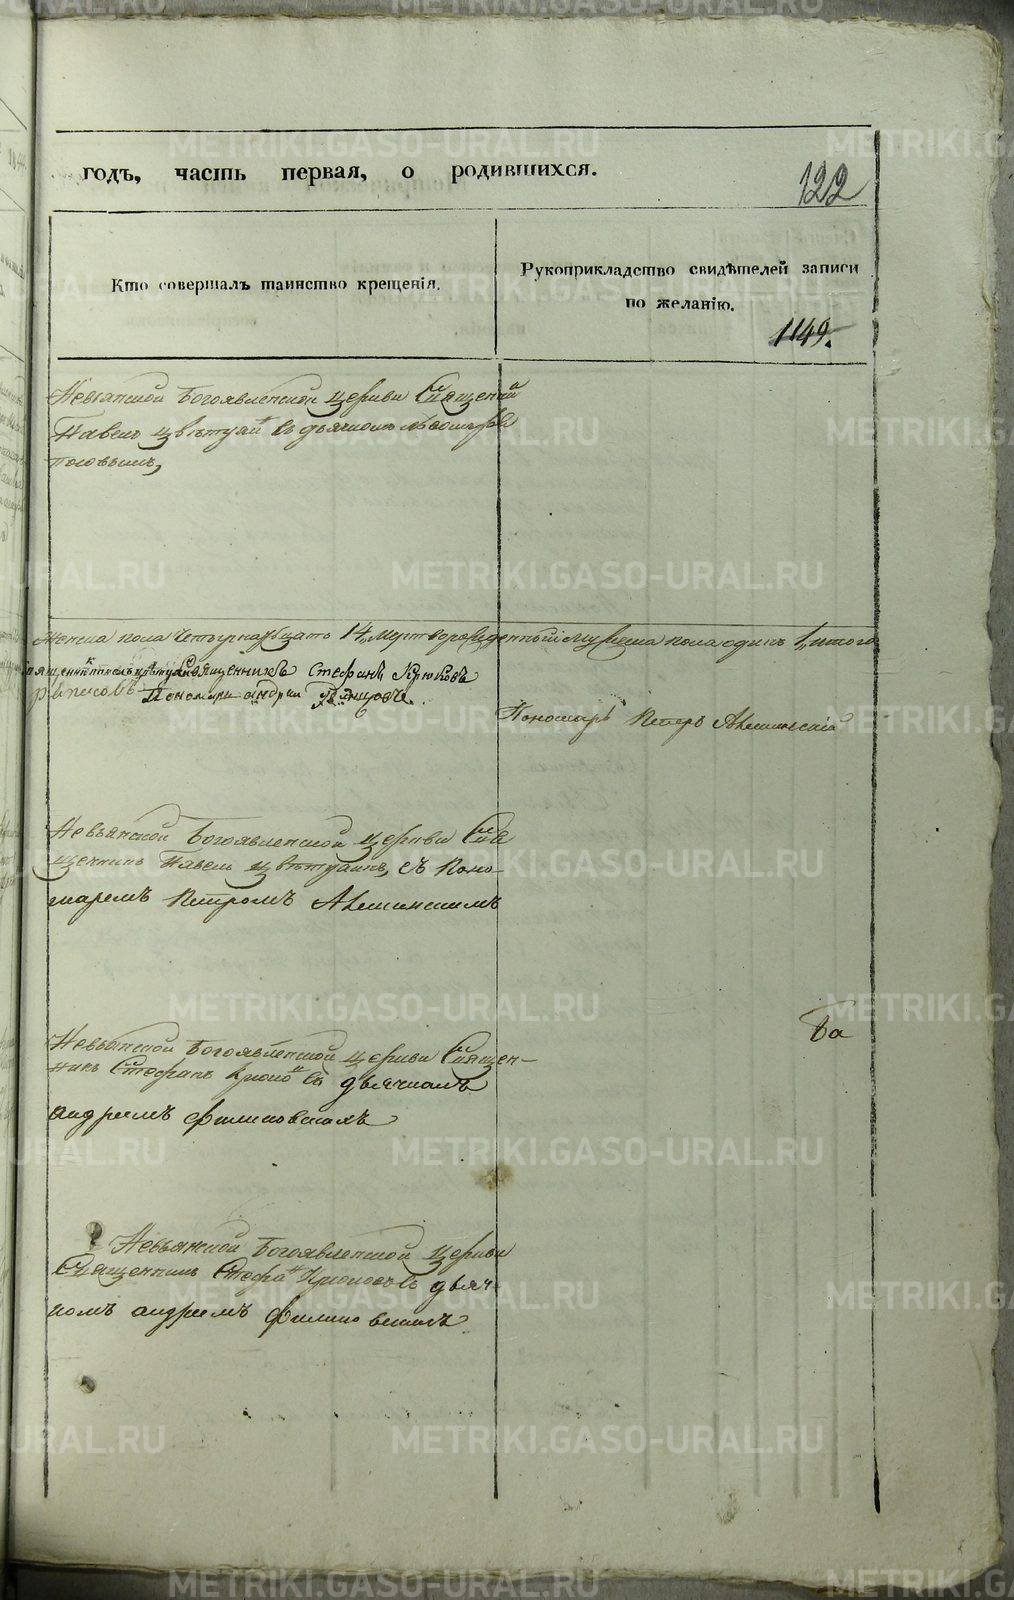 годъ, часть первая, о родившихся.
122
Кто совершалъ таинство крещенія.
Рукоприкладство свидѣтелей записи
по желанію.
1149.
Невьянской Богоявленской церкви Священникъ
Павелъ Цвѣтухинъ съ дьячкомъ
Поповымъ,
Женска пола четырнадцать 14, мертворожденный мужеска пола одинъ 1, итого
Священникъ Стефанъ Крюковъ
Пономарь андрей
Пономарь Петръ
Невьянской Богоявленской церкви Свя
щенникъ Павелъ Цвѣтухинъ, съ Поно-
маремъ Петромъ
Невьянской Богоявленской церкви Священ-
никъ Стефанъ съ дьячкомъ
андреемъ Филиповскимъ
Невьянской Богоявленской церкви
Священникъ Стефанъ Крюковъ съ дьяч-
комъ андреемъ Филиповскимъ
METRIKI.GASO-URAL.RU